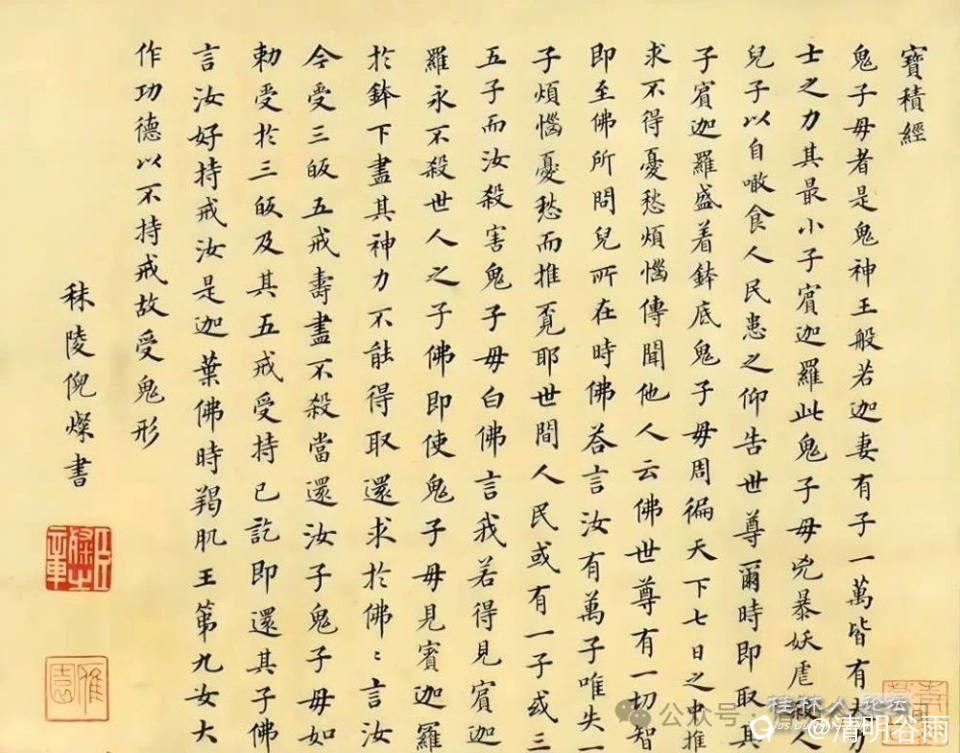 寶積經
鬼子母者是鬼神王般若迦妻有子一萬皆有大力
士之力其最小子賓迦羅此鬼子母兇暴妖虐人
兒子以自噉食人民患之仰告世尊爾時即取其
子賓迦羅盛着鉢底鬼子母周徧天下七日之中推
求不得憂愁煩惱傳聞他人云佛世尊有一切智
即至佛所問兒所在時佛答言汝有萬子唯失一
子煩惱憂愁而推覓耶世間人民或有一子或三
五子而汝殺害鬼子母白佛言我若得見賓迦
羅永不殺世人之子佛即使鬼子母見賓迦羅
於鉢下盡其神力不能得取還求於佛〻言汝
今受三皈五戒壽盡不殺當還汝子鬼子母如
勅受於三皈及其五戒受持已訖即還其子佛
言汝好持戒汝是迦葉佛時羯肌王第九女大
作功德以不持戒故受鬼形
秣陵倪燦書
雁園
桂林人论坛
公众号
@清明谷雨